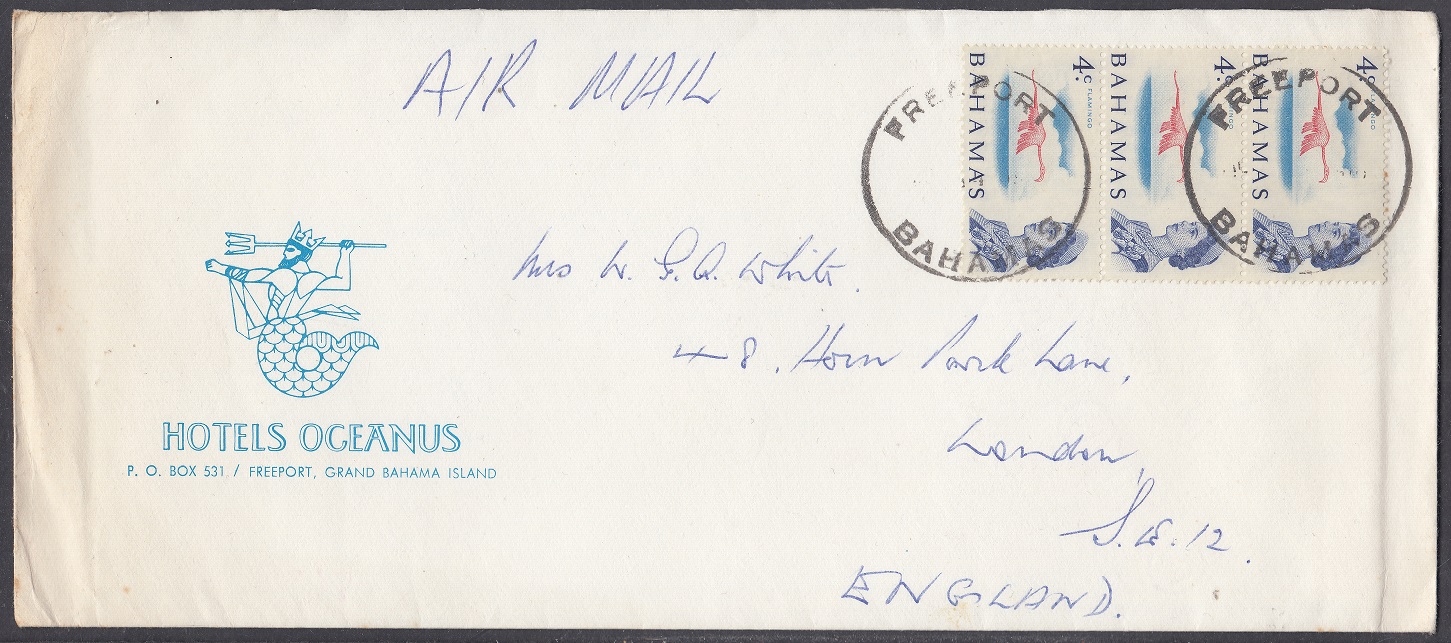 AIR MAIL
4c FLAMINGO BAHAMAS
4c BAHAMAS
4c BAHAMAS
FREEPORT
BAHAMAS
FREEPORT
BAHAMAS
Mrs W. G. A. White.
48, Horn Park Lane,
London,
S.E.12.
ENGLAND.
HOTELS OCEANUS
P. O. BOX 531 / FREEPORT, GRAND BAHAMA ISLAND